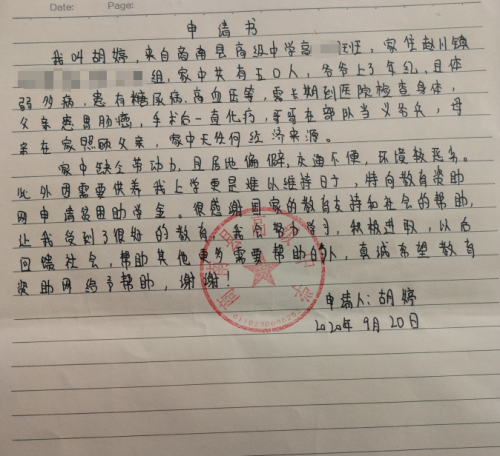 Date:  Page:
申请书
我叫胡婷，来自商南县高级中学高 班，家住赵川镇
组，家中共有五口人，爷爷上了年纪，且体
弱多病，患有糖尿病、高血压等，需长期到医院检查身体，
父亲患胃肠癌，手术后一直化疗，哥哥在部队当义务兵，母
亲在家照顾父亲，家中无任何经济来源。
家中缺乏劳动力，且居地偏僻，交通不便，环境较恶劣。
此外因需要供养我上学更是难以维持日子，特向教育资助
网申请贫困助学金。很感谢国家的教育支持和社会的帮助，
让我受到了很好的教育，我会努力学习，积极进取，以后
回馈社会，帮助其他更多需要帮助的人，真诚希望教育
资助网给予帮助，谢谢！
申请人：胡婷
2020年9月20日